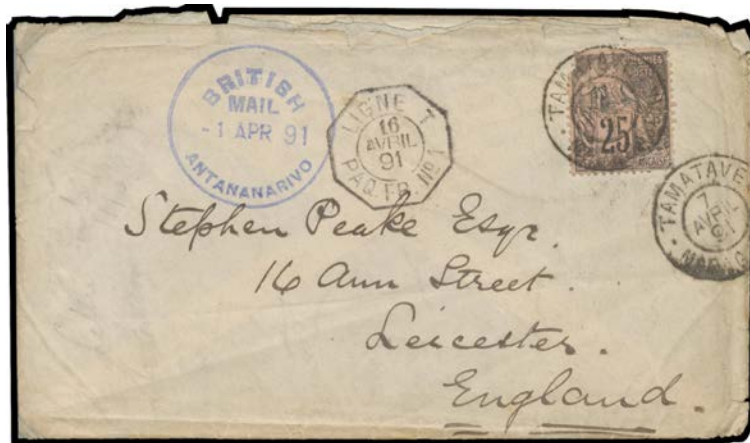 BRITISH
MAIL
- 1 APR 91
ANTANANARIVO
LIGNE T
16
AVRIL
91
PAQ. FR. No 1
TAMATAVE
COLONIES
POSTE
25
TAMATAVE
7
AVRIL
91
Stephen Peake Esqr.
16 Ann Street.
Leicester.
England.